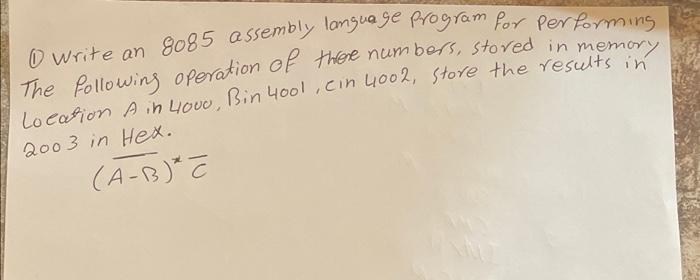 ① Write an 8085 assembly language program for performing
The following operation of three numbers, stored in memory
Location A in 4000, B in 4001, C in 4002, store the results in
2003 in Hex.
(\overline{A-B})* \overline{C}